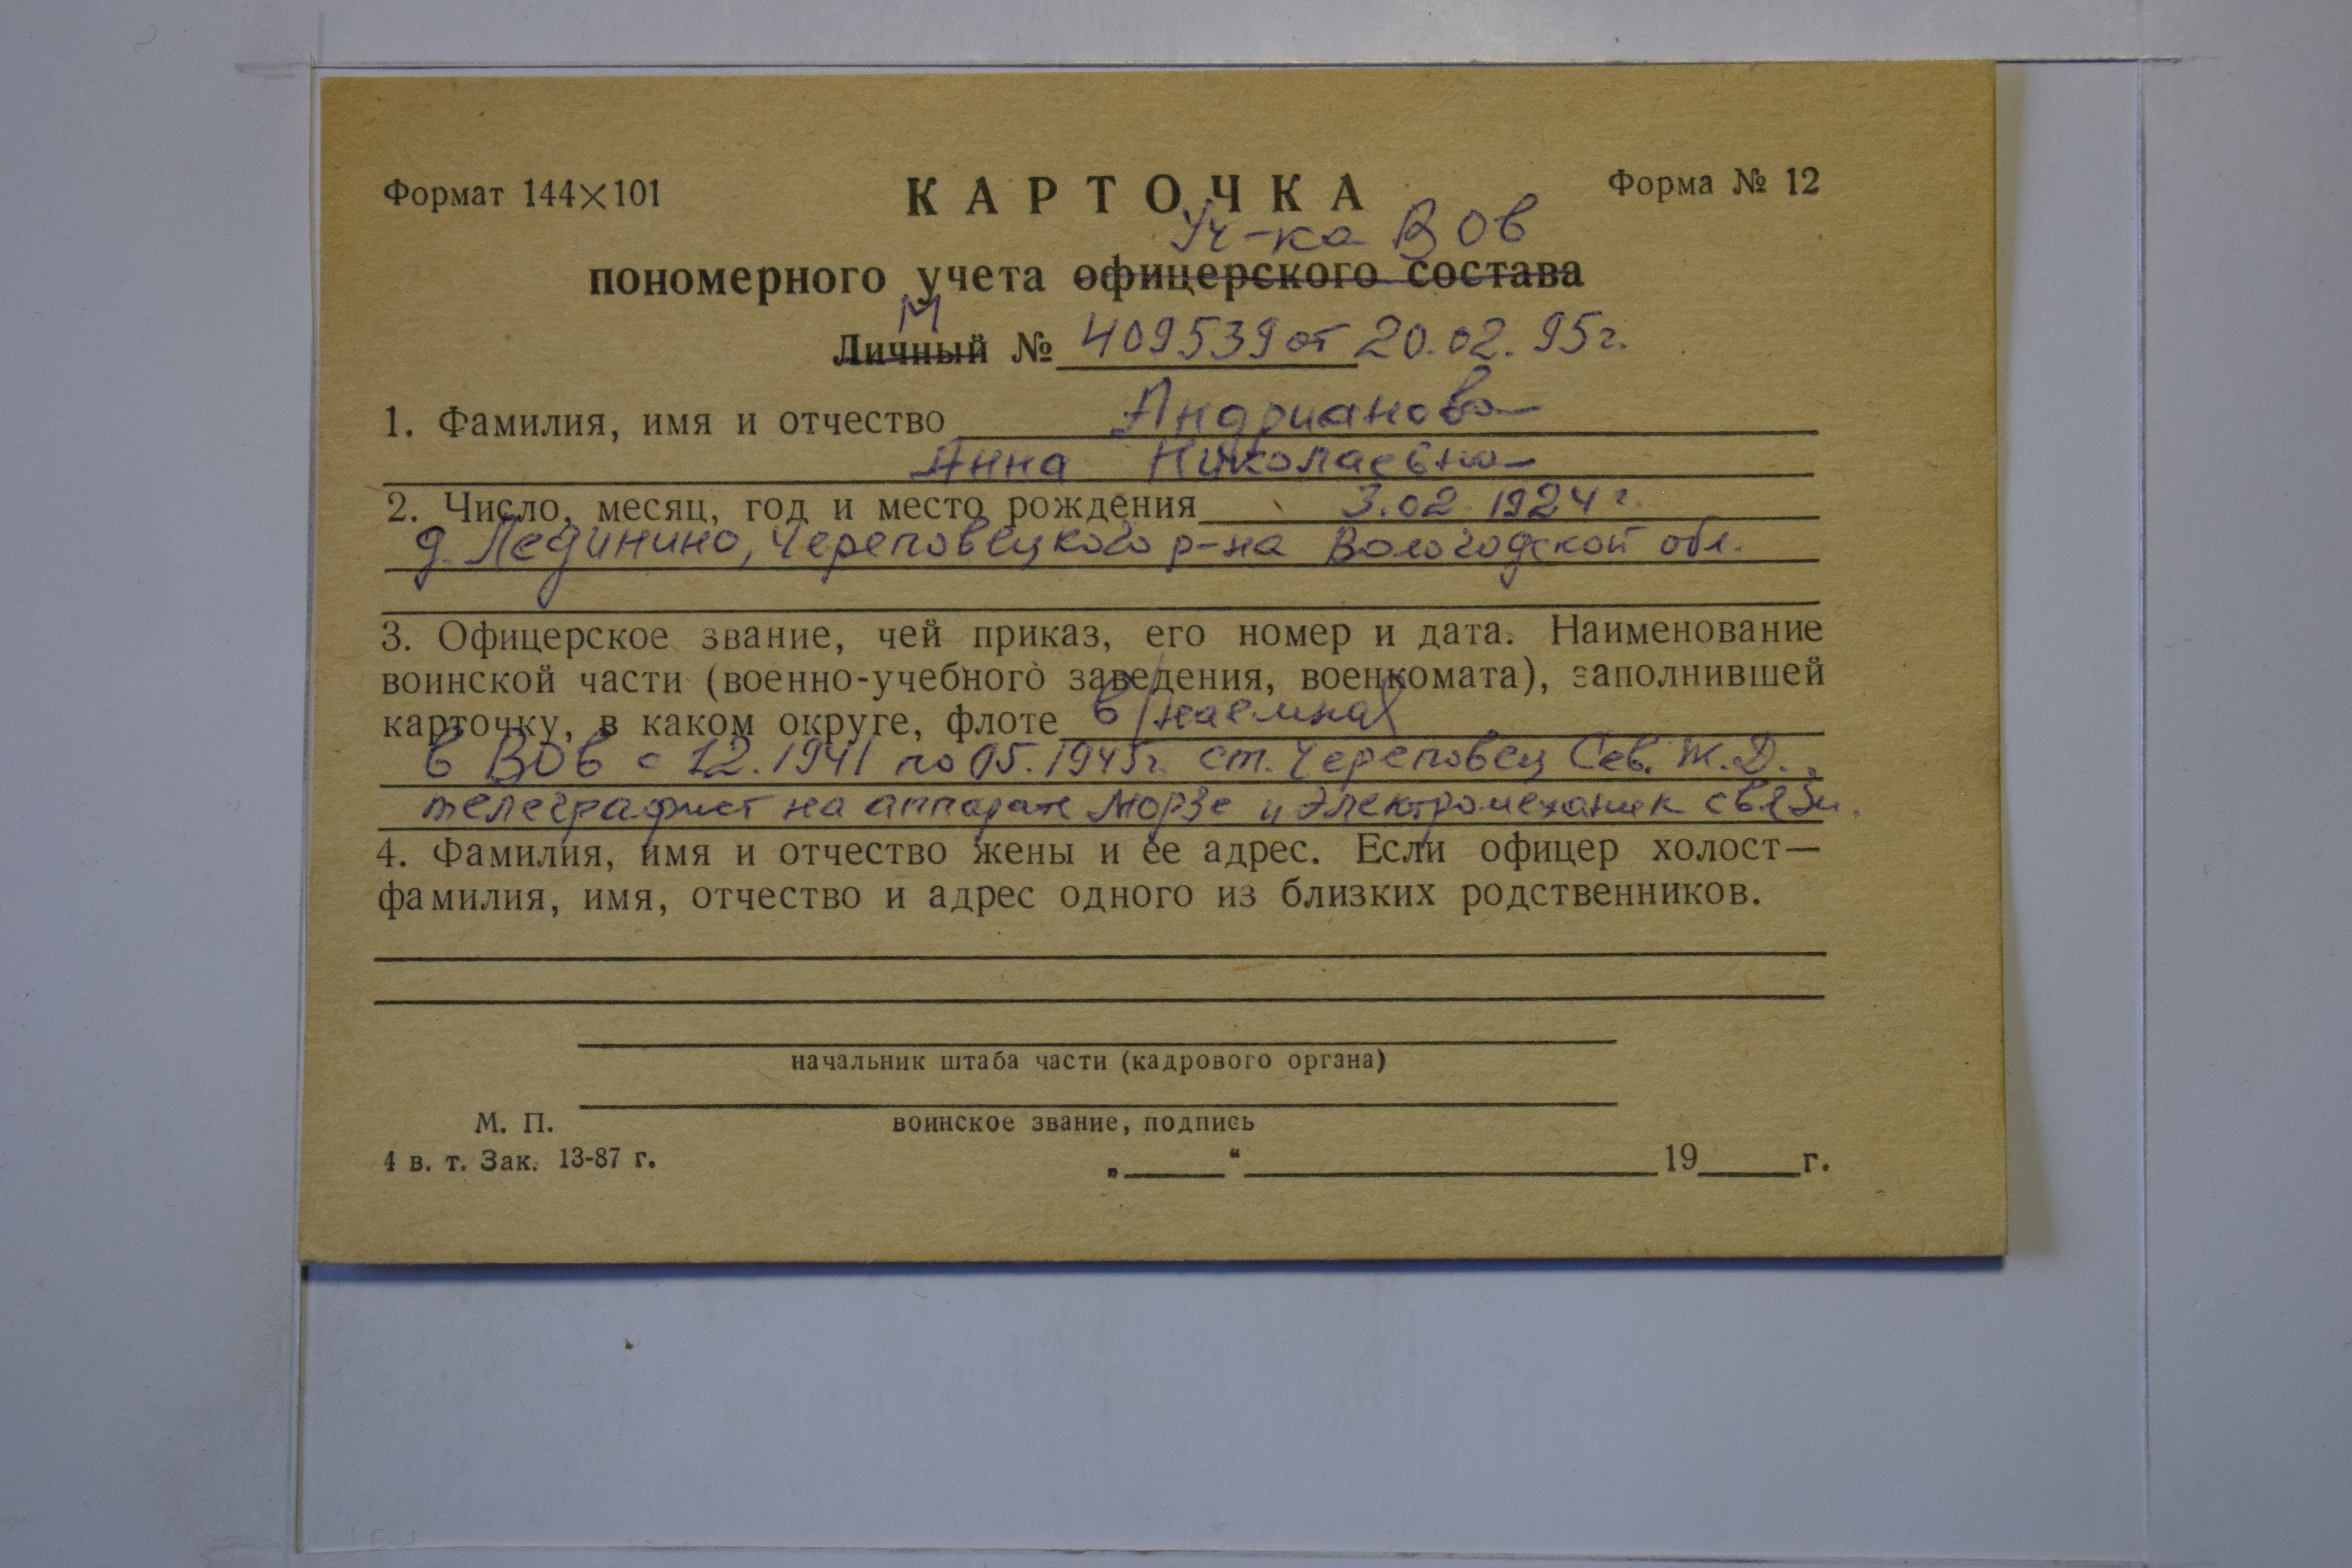 Формат 144×101
КАРТОЧКА
Форма № 12
Уч-ка ВОв
пономерного учета офицерского состава
М
Личный № 409539 от 20.02.95г.
1. Фамилия, имя и отчество Андрианова
Анна Николаевна
2. Число, месяц, год и место рождения 3.02.1924 г.
д. Лединино, Череповецкого р-на Вологодской обл.
3. Офицерское звание, чей приказ, его номер и дата. Наименование
воинской части (военно-учебного заведения, военкомата), заполнившей
карточку, в каком округе, флоте в/наемная
в ВОв с 12.1941 по 05.1945г. ст. Череповец Сев. Ж.Д.,
телеграфист на аппарате Морзе и электромеханик связи.
4. Фамилия, имя и отчество жены и ее адрес. Если офицер холост—
фамилия, имя, отчество и адрес одного из близких родственников.
начальник штаба части (кадрового органа)
М. П.
воинское звание, подпись
4 в. т. Зак. 13-87 г.
„ “ 19 г.